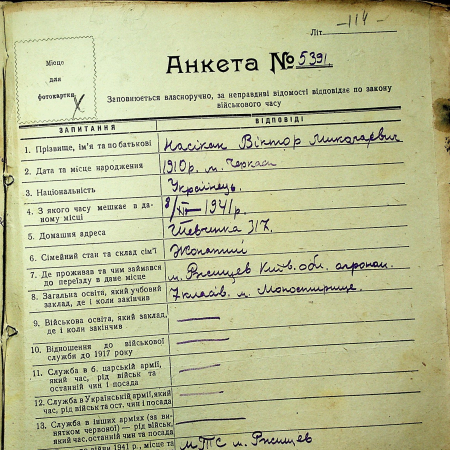 Літ.
—114—
Місце
для
фотокартки
Анкета № 5391.
Заповнюється власноручно, за неправдиві відомості відповідає по закону
військового часу
ЗАПИТАННЯ ВІДПОВІДІ
1. Прізвище, ім'я та по батькові Насікан Віктор Миколаєвич
2. Дата та місце народження 1910р. м. Черкаси
3. Національність Українець.
4. З якого часу мешкає в да-
ному місці 8/XII—1941р.
5. Домашня адреса Шевченка 317.
6. Сімейний стан та склад сім'ї Жонатий
7. Де проживав та чим займався
до переїзду в дане місце м. Ржищев Київ. обл. агроном.
8. Загальна освіта, який учбовий
заклад, де і коли закінчив 7 класів м. Монастирище
9. Військова освіта, який заклад,
де і коли закінчив —
10. Відношення до військової
служби до 1917 року —
11. Служба в б. царській армії,
який час, рід військ та
останній чин і посада —
12. Служба в Українській армії, який
час, рід військ та ост. чин і посада —
13. Служба в інших арміях (за ви-
нятком червоної) — рід військ,
який час, останній чин та посада —
до війни 1941 р., місце та МТС м. Ржищев